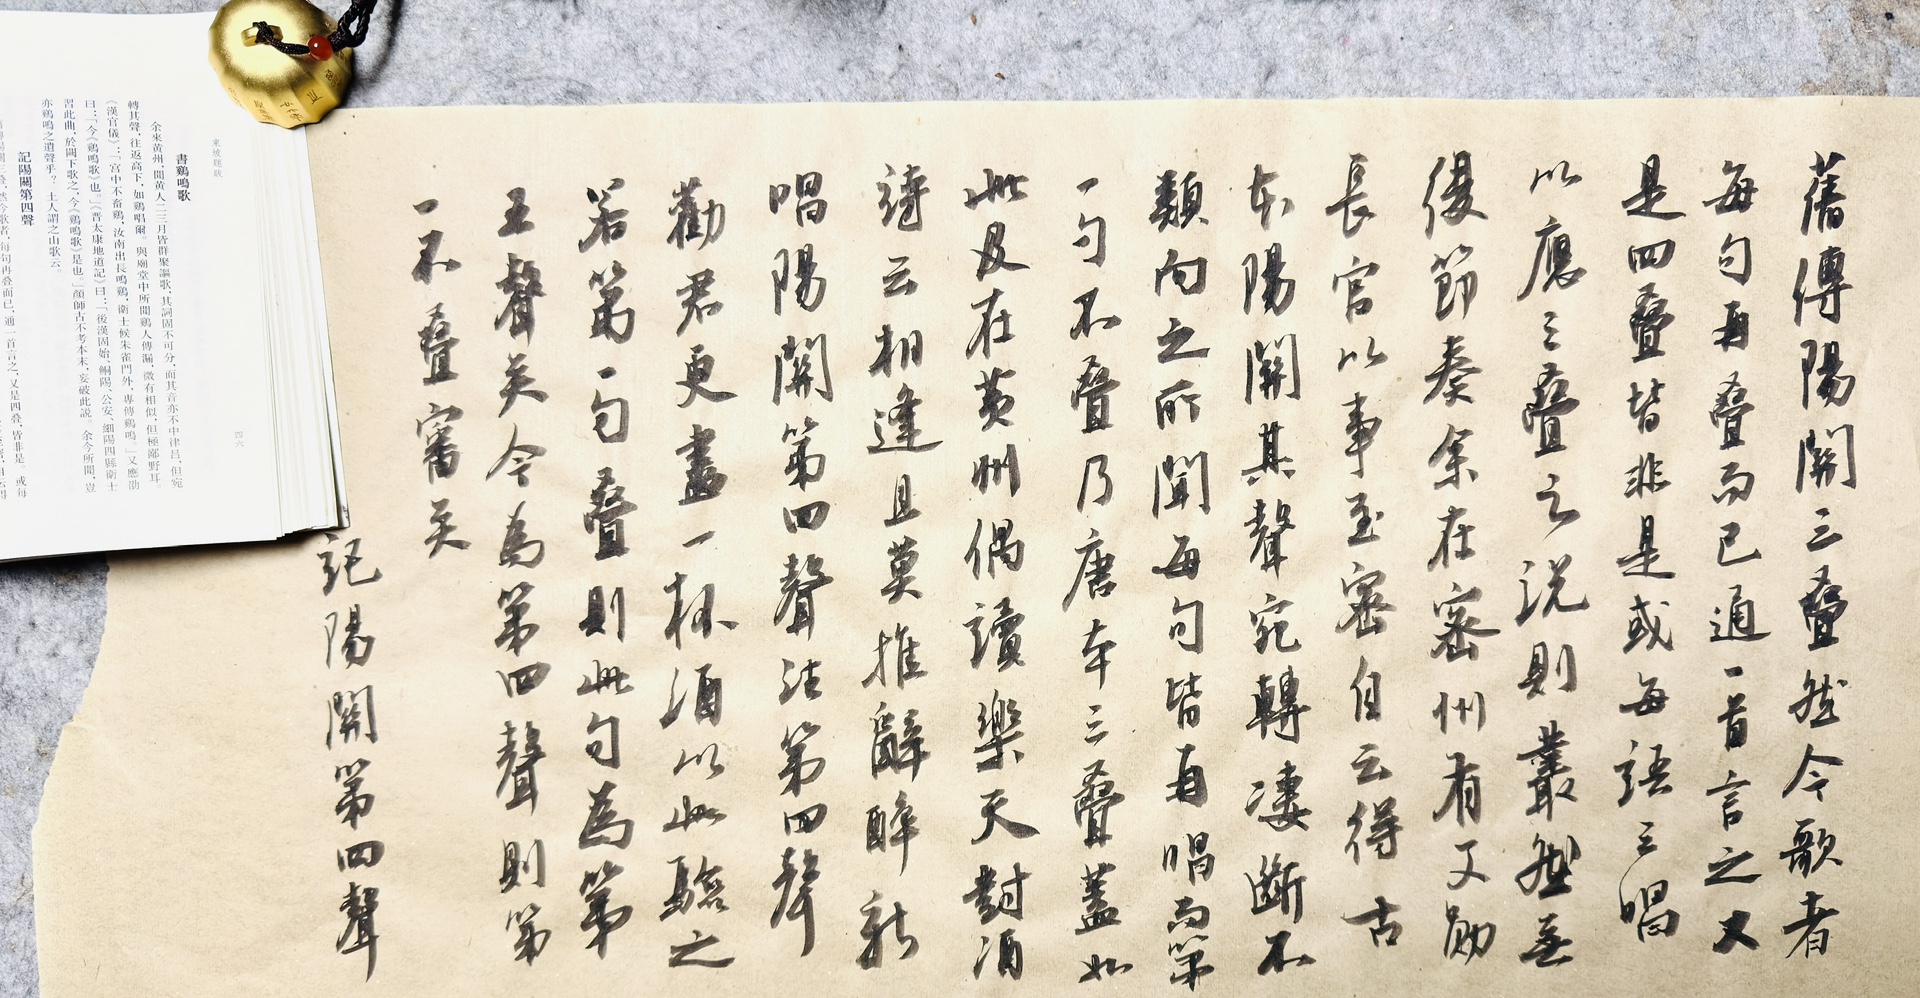 舊傳陽關三疊然今歌者
每句再疊而已通一首言之又
是四疊皆非是或每語三唱
以應三疊之說則叢然無
復節奏余在密州有文勛
長官以事至密自云得古
本陽關其聲宛轉淒斷不
類向之所聞每句皆再唱而第
一句不疊乃唐本三疊蓋如
此及在黃州偶讀樂天對酒
詩云相逢且莫推辭醉新
唱陽關第四聲注第四聲
勸君更盡一杯酒以此驗之
若第一句疊則此句為第
五聲矣今為第四聲則第
一不疊審矣
記陽關第四聲
東坡題跋
四六
書鷄鳴歌
余來黃州，聞黃人二三月皆群聚謳歌，其詞固不可分，而其音亦不中律呂，但宛
轉其聲，往返高下，如鷄唱爾。與廟堂中所聞鷄人傳漏，微有相似，但極鄙野耳。
《漢官儀》：「宮中不畜鷄，汝南出長鳴鷄，衛士候朱雀門外，專傳鷄鳴。」又應劭
曰：「今《鷄鳴歌》也。」《晉太康地道記》曰：「後漢固始、鮦陽、公安、細陽四縣衛士
習此曲，於闕下歌之，今《鷄鳴歌》是也。」顏師古不考本末，妄破此説。余今所聞，豈
亦鷄鳴之遺聲乎？土人謂之山歌云。
記陽關第四聲
然今歌者，每句再叠而已，通一首言之，又是四叠，皆非是。或每